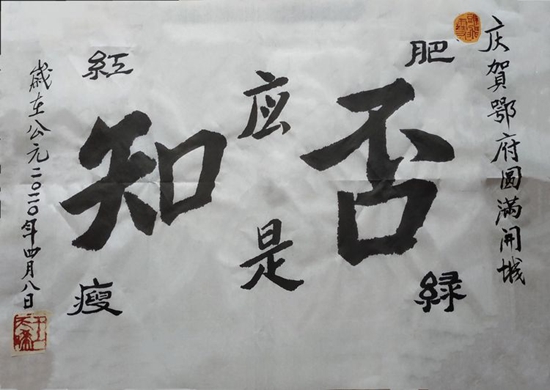 庆賀鄂府圓滿開城
肥
否
緑
应是
紅
知
瘦
歲在公元二〇二〇年四月八日